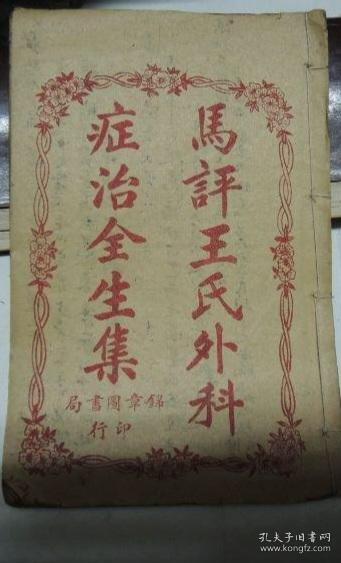 馬評王氏外科
症治全生集
錦章圖書局
印行
孔夫子旧书网
www.kongfz.com